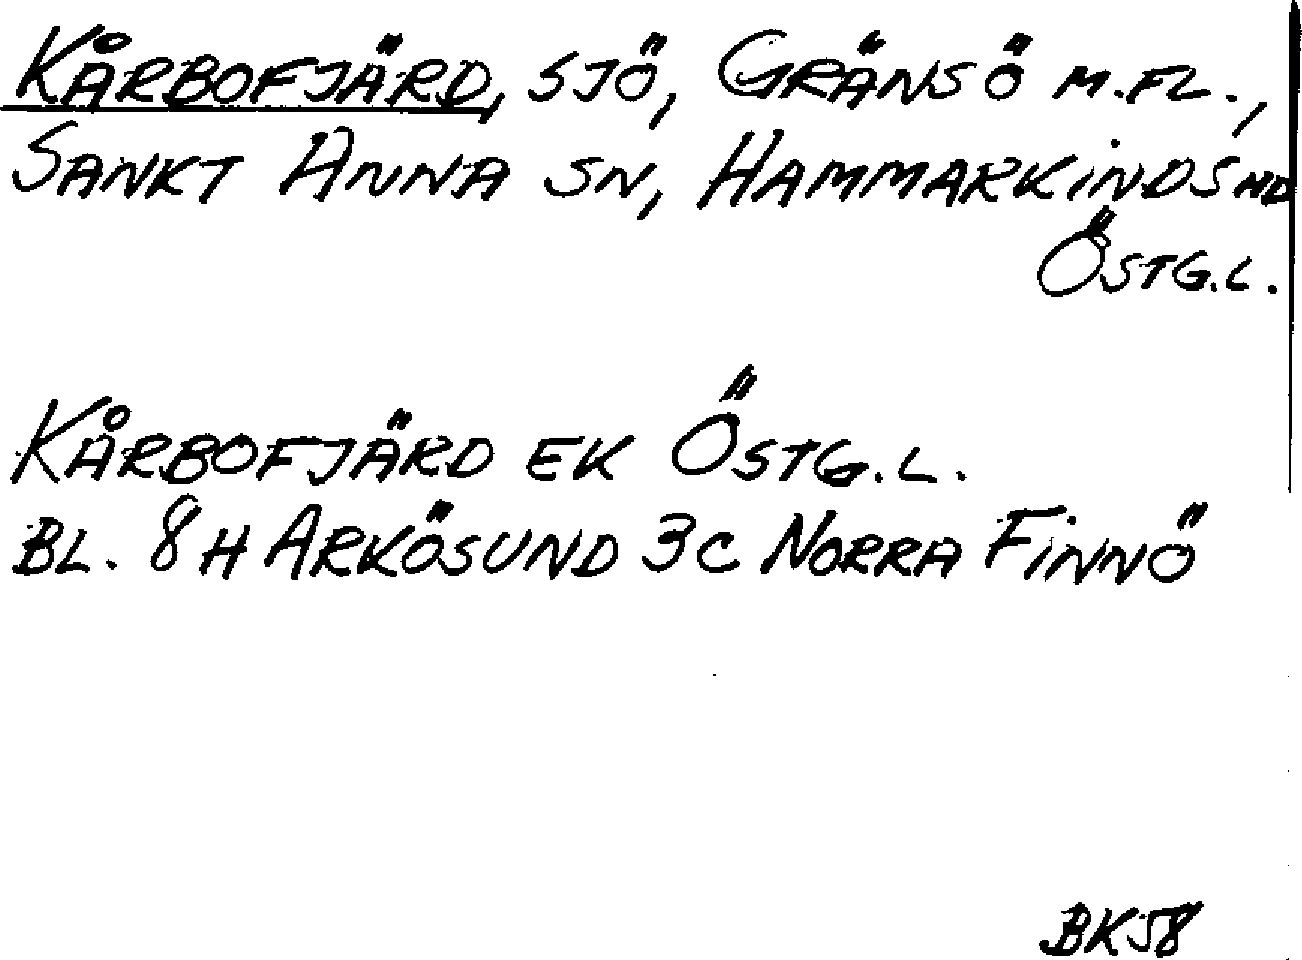 KÅRBOFJÄRD, SJÖ, GRÄNSÖ M.FL.,
SANKT ANNA SN, HAMMARKINDS HD
ÖSTG.L.
KÅRBOFJÄRD EK ÖSTG.L.
BL. 8H ARKÖSUND 3C NORRA FINNÖ
BK58